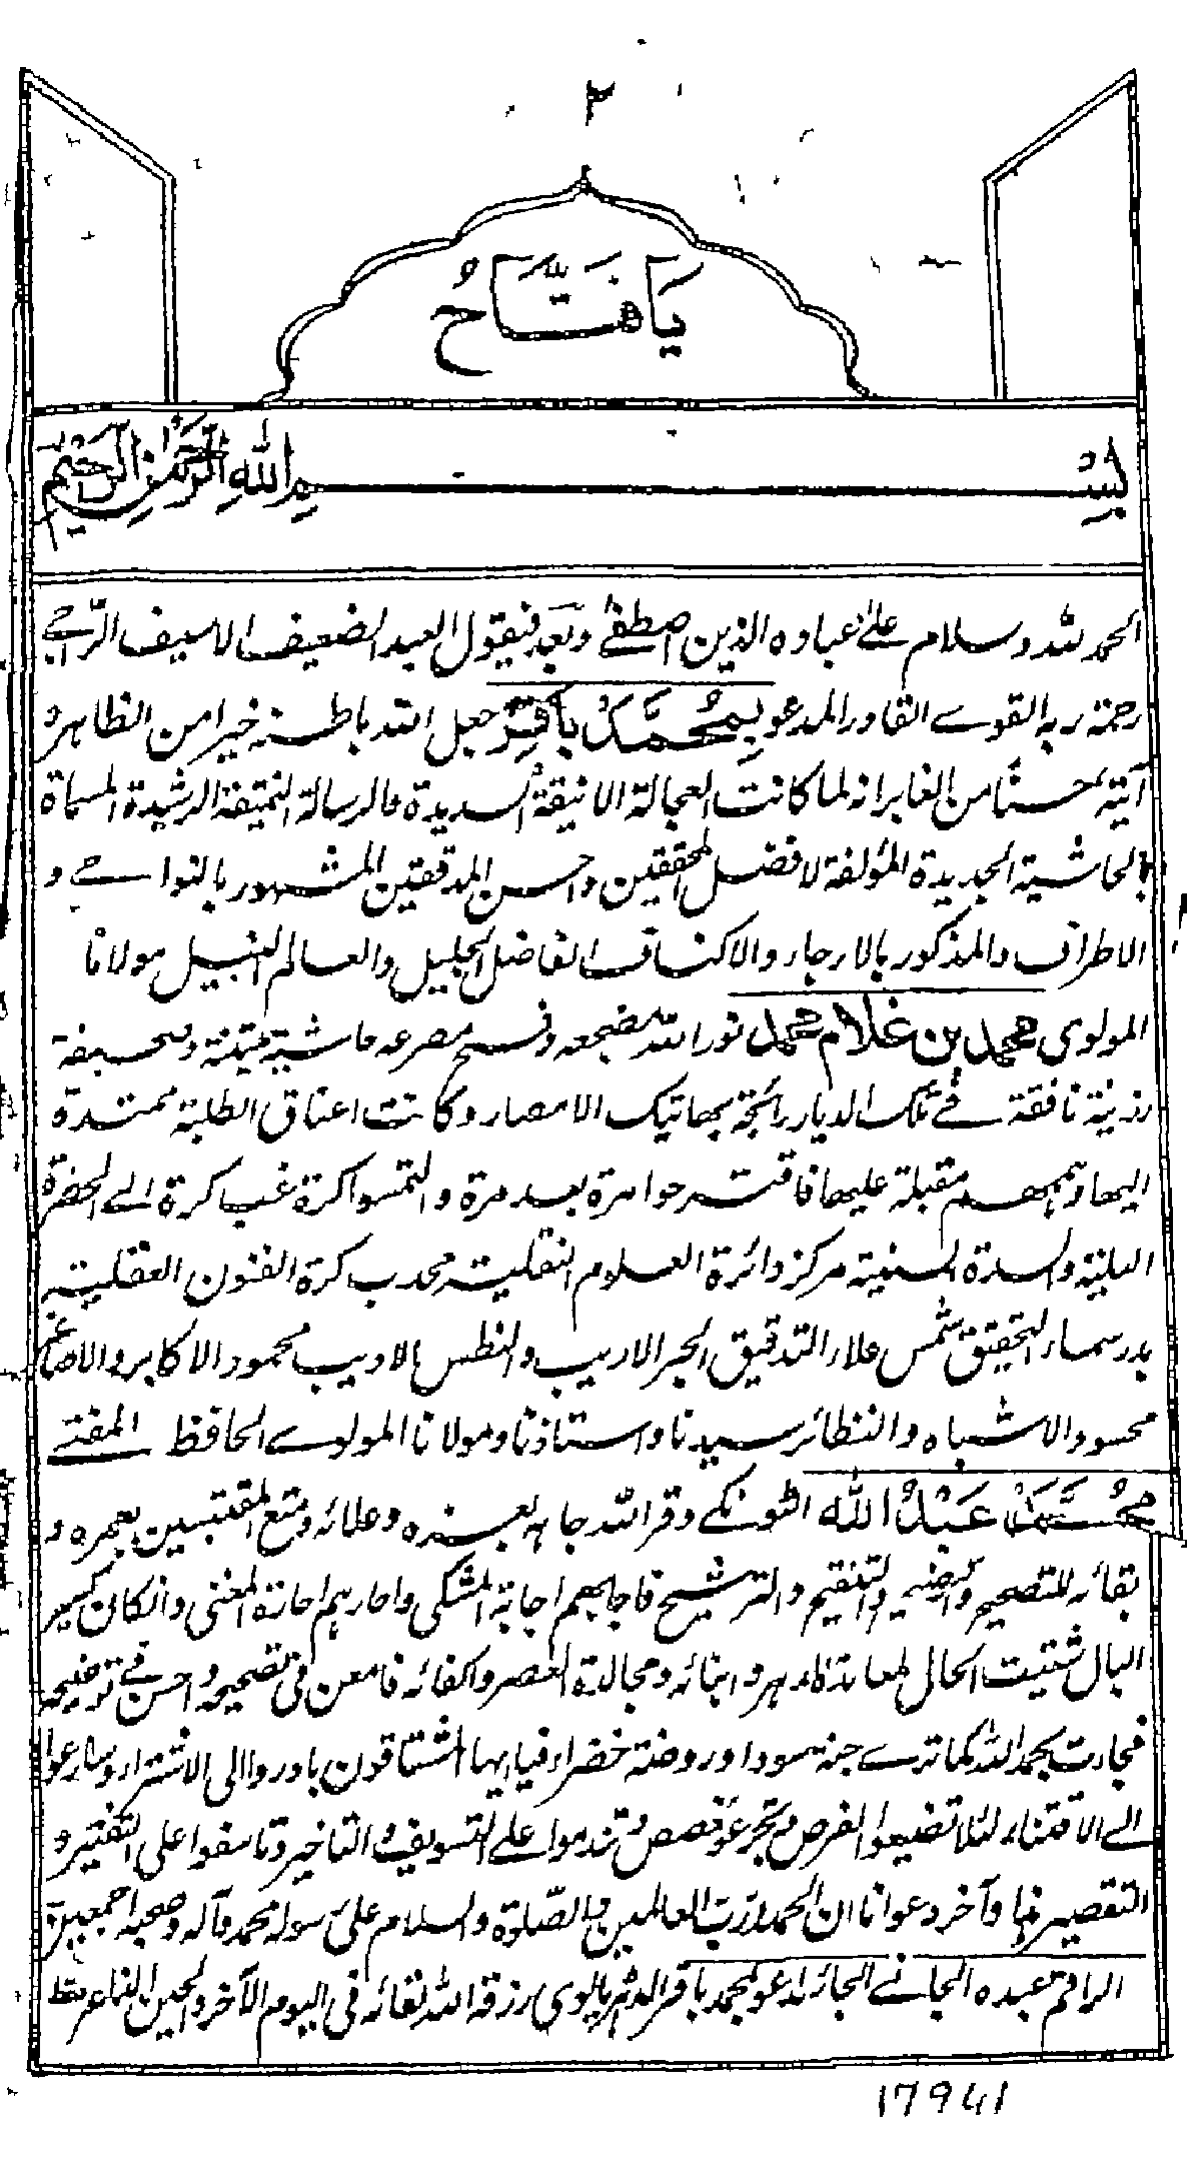 ٢
يَا فَتَّاحُ
بِسْمِ اللهِ الرَّحْمٰنِ الرَّحِيْمِ
الحمد لله وسلام على عباده الذين اصطفىٰ وبعد فيقول العبد الضعيف الاسيف الرّاجي
رحمة ربه القوے القادر المدعو بِمُحَمَّدْ بَاقِرْ جعل الله باطنه خيرا من الظاهر و
آتيه حسنًا من الغابر انه لما كانت العجالة الانيقة السديدة والرسالة النميقة الرشيدة المسماة
بالحاشية الجديدة المؤلفة لافضل المحققين واحسن المدققين المشهور بالنواحے و
الاطراف والمذكور بالارجاء والاكناف الفاضل الجليل والعالم النبيل مولانا
المولوى محمد بن غلام محمد نور الله مضجعه وفسح مصرعه حاشية متينة وصحيفة
رزينة نافقة فے تلك الديار رائجة بهاتيك الامصار وكانت اعناق الطلبة ممتدة
اليها وهممهم مقبلة عليها فاقترحوا مرة بعد مرة والتمسوا كرة غب كرة الے الحضرة
العلية والسدة السنية مركز دائرة العلوم النقلية محدب كرة الفنون العقلية
بدر سماء التحقيق شمس علاء التدقيق الحبر الاريب والنطس الاديب محمود الاكابر والاصاغر
محسود الاشباه والنظائر سيدنا واستاذنا ومولانا المولوے الحافظ المفتے
مُحَمَّدْ عَبْدُ اللهِ الٹونكے وقر الله جاهه وعلائه ومتع المقتبسين بعمره و
بقائه للتصحيح والتوضيح والتنقيح والترشيح فاجابهم اجابة المشكى واحارهم احارة المغنى وانكان كسير
البال شتيت الحال لمعاندة الدهر وابنائه ومجادلة العصر واكفائه فامعن فى تصحيحه واحسن فے توضيحه
فجاءت بحمد الله كما ترے جنة سوداء وروضة خضراء فيا ايها المشتاقون بادروا الى الاشتراء وسارعوا
الے الاقتناء لئلا تضيعوا الفرص وتندموا علے التسويف والتاخير وتاسفوا على التفتير و
التقصير وآخر دعوانا ان الحمد لله رب العالمين والصّلوة والسلام علىٰ رسوله محمد وآله وصحبه اجمعين
الراقم عبده الجانے المدعو بمحمد باقر رزقه الله لقائه فى اليوم الآخر فقط
17941